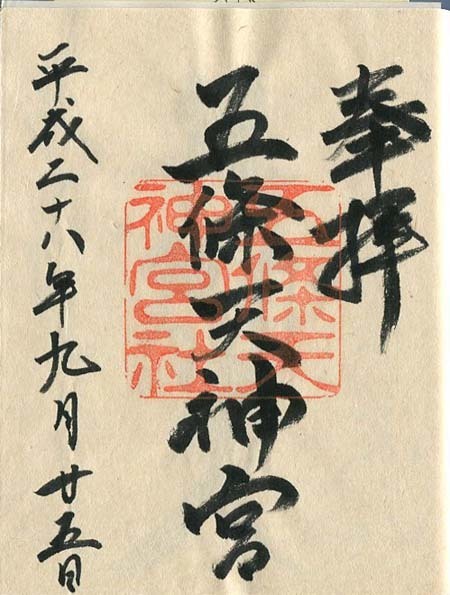 奉拝
五條天神宮
五條天
神宮社
平成二十八年九月廿五日